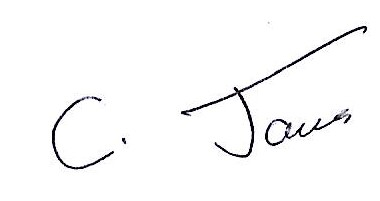 C. Jaws